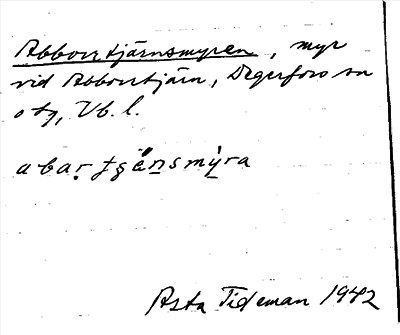 Abborrtjärnsmyren, myr
vid Abborrtjärn, Degerfors sn
o tg, Vb. l.
abaṛ tʂä́ṇsmỳra
Asta Tideman 1942